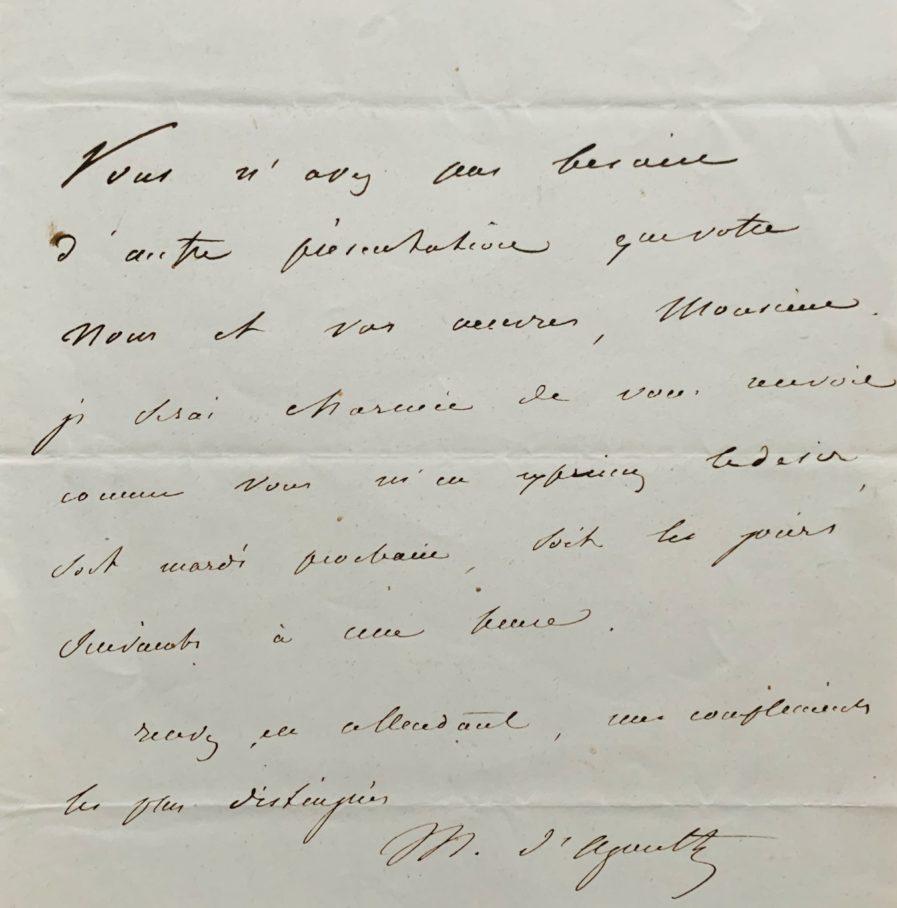 Vous n'avez pas besoin
d'autre présentation que votre
nom et vos œuvres, Monsieur.
je serai charmée de vous recevoir
comme vous m'en exprimez le desir,
soit mardi prochain, soit les jours
suivants à une heure.
recevez en attendant, mes compliments
les plus distingués
M. d'Agoult